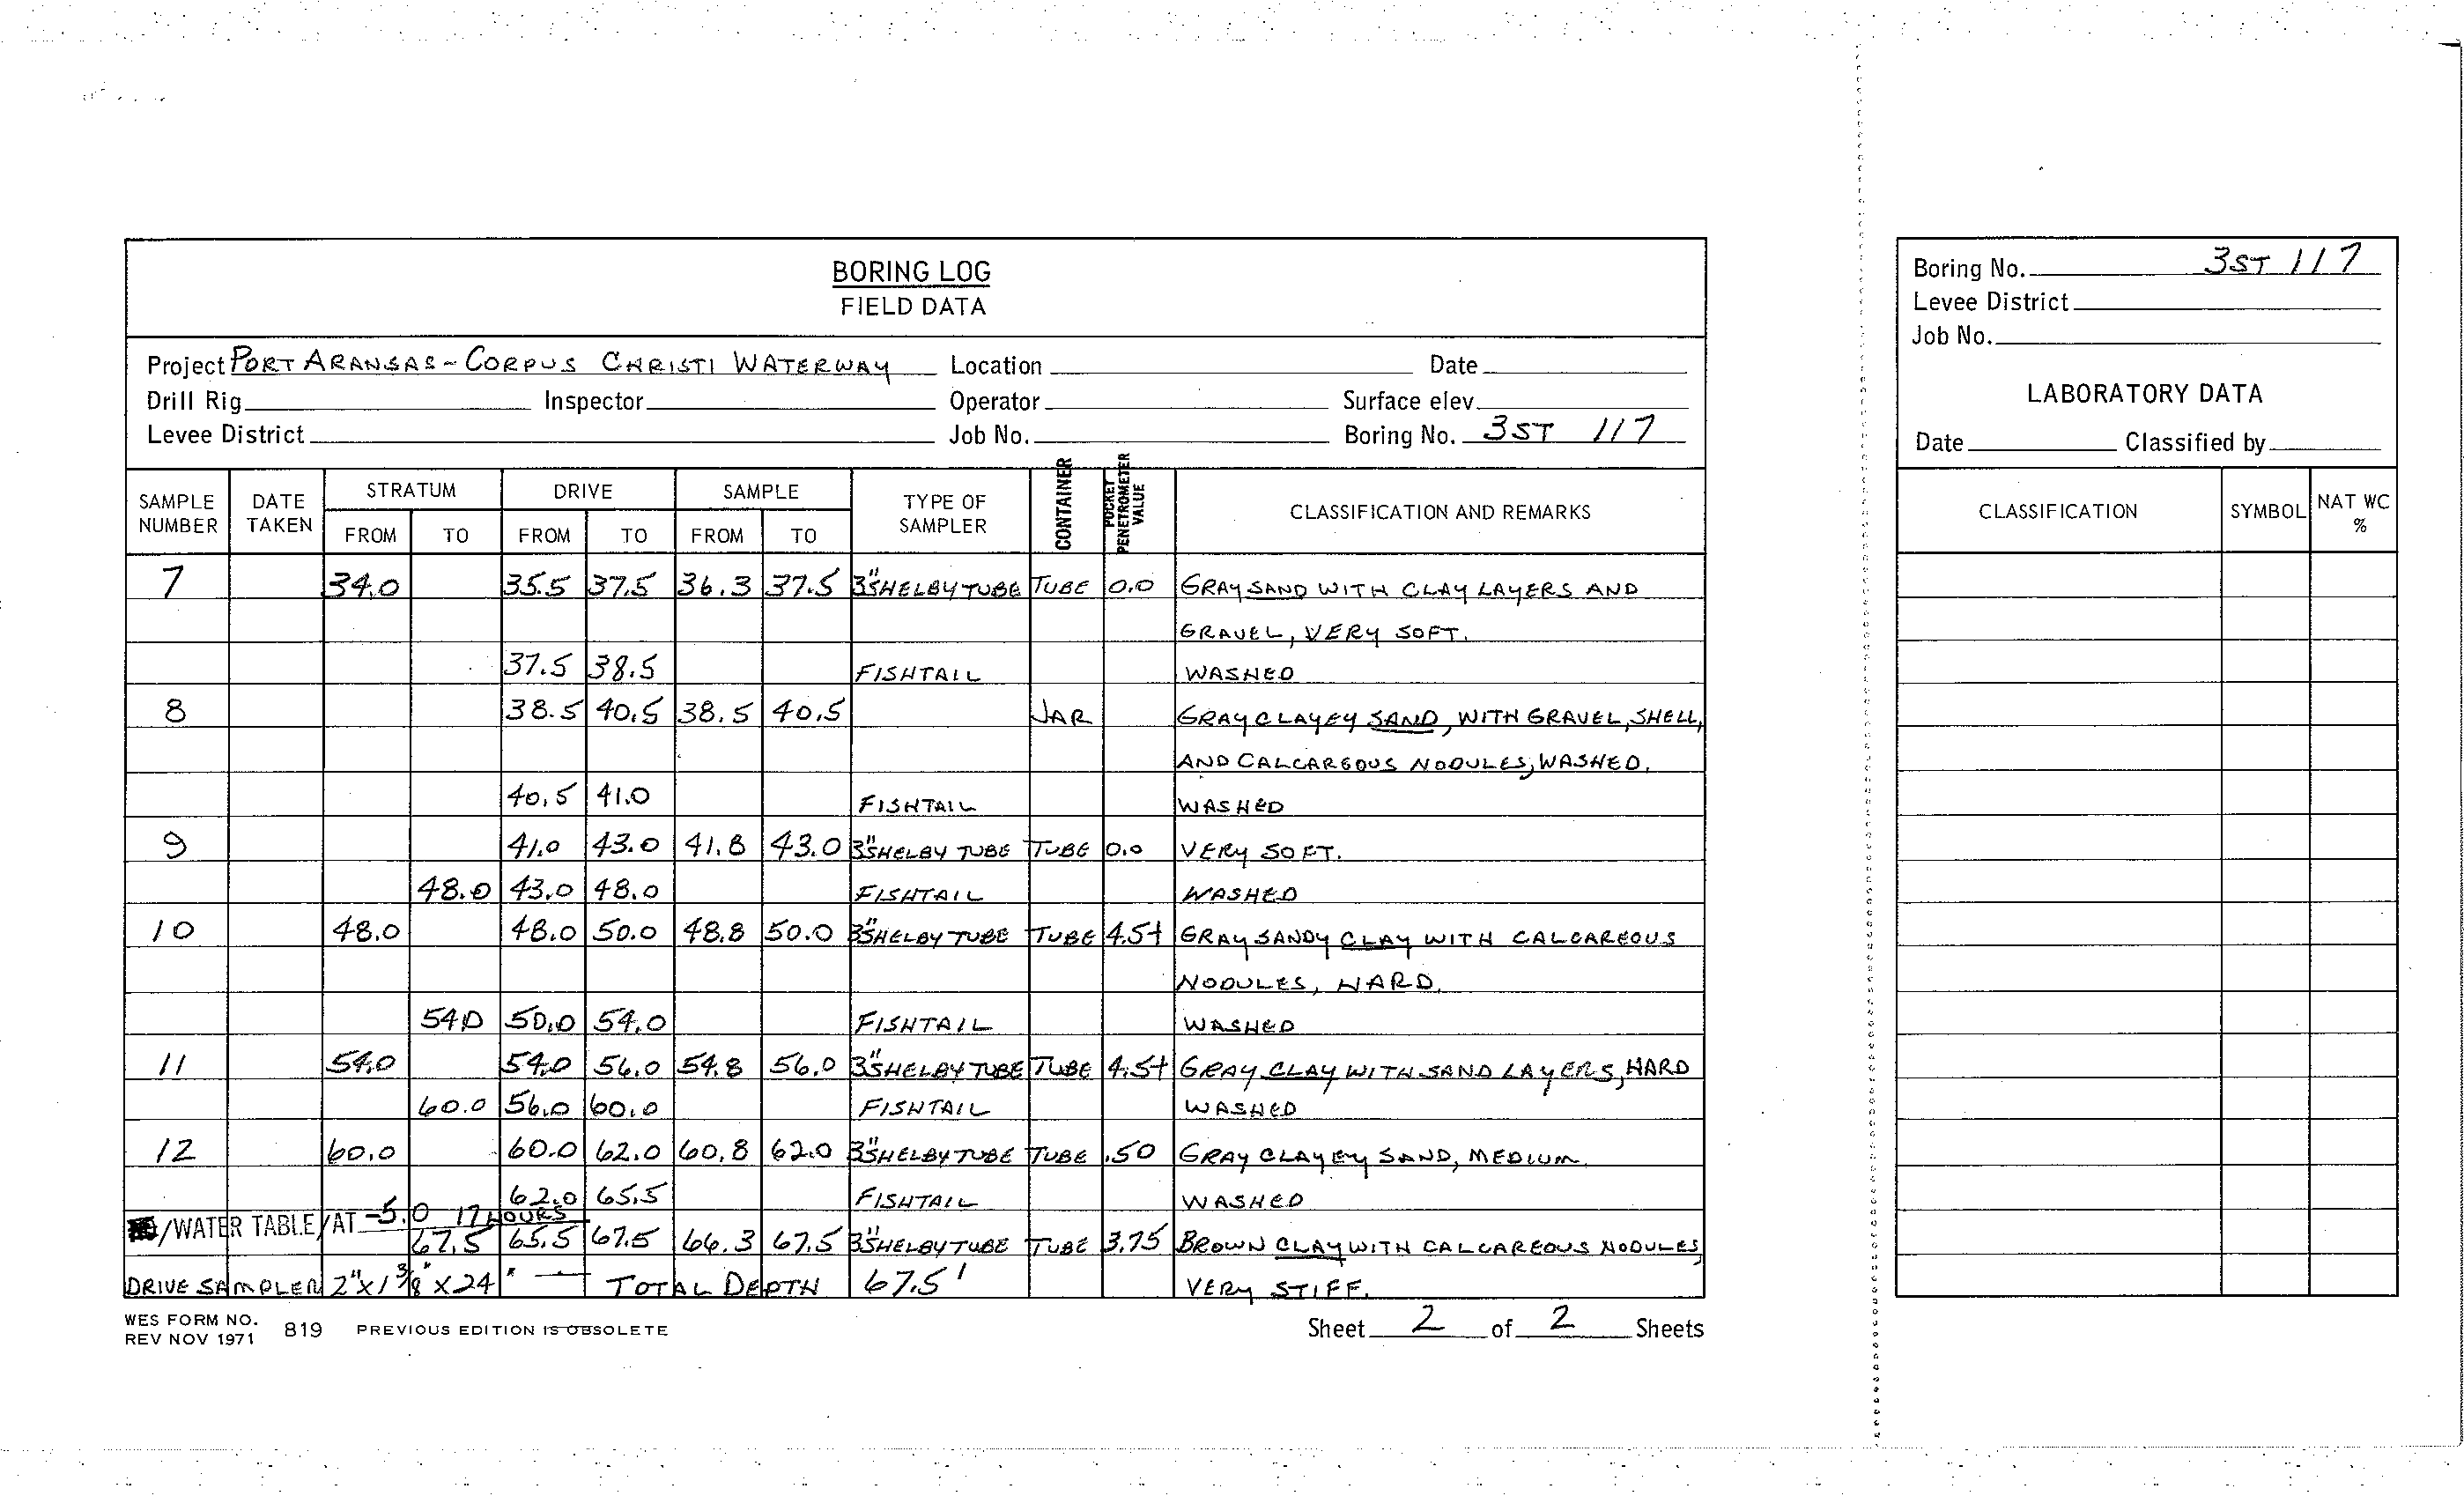 BORING LOG
FIELD DATA
Project PORT ARANSAS - CORPUS CHRISTI WATERWAY Location Date
Drill Rig Inspector Operator Surface elev.
Levee District Job No. Boring No. 3ST 117
SAMPLE NUMBER DATE TAKEN STRATUM FROM TO DRIVE FROM TO SAMPLE FROM TO TYPE OF SAMPLER CONTAINER POCKET PENETROMETER VALUE CLASSIFICATION AND REMARKS
7 34.0 35.5 37.5 36.3 37.5 3" SHELBY TUBE TUBE 0.0 GRAY SAND WITH CLAY LAYERS AND
GRAVEL, VERY SOFT.
37.5 38.5 FISHTAIL WASHED
8 38.5 40.5 38.5 40.5 JAR GRAY CLAYEY SAND, WITH GRAVEL, SHELL,
AND CALCAREOUS NODULES, WASHED.
40.5 41.0 FISHTAIL WASHED
9 41.0 43.0 41.8 43.0 3" SHELBY TUBE TUBE 0.0 VERY SOFT.
48.0 43.0 48.0 FISHTAIL WASHED
10 48.0 48.0 50.0 48.8 50.0 3" SHELBY TUBE TUBE 4.5+ GRAY SANDY CLAY WITH CALCAREOUS
NODULES, HARD.
54.0 50.0 54.0 FISHTAIL WASHED
11 54.0 54.0 56.0 54.8 56.0 3" SHELBY TUBE TUBE 4.5+ GRAY CLAY WITH SAND LAYERS, HARD
60.0 56.0 60.0 FISHTAIL WASHED
12 60.0 60.0 62.0 60.8 62.0 3" SHELBY TUBE TUBE .50 GRAY CLAYEY SAND, MEDIUM.
62.0 65.5 FISHTAIL WASHED
/WATER TABLE/AT -5.0 17 HOURS
67.5 65.5 67.5 66.3 67.5 3" SHELBY TUBE TUBE 3.75 BROWN CLAY WITH CALCAREOUS NODULES,
DRIVE SAMPLER 2" X 1 3/8" X 24" — TOTAL DEPTH 67.5' VERY STIFF.
WES FORM NO. 819 PREVIOUS EDITION IS OBSOLETE
REV NOV 1971
Sheet 2 of 2 Sheets
Boring No. 3ST 117
Levee District
Job No.
LABORATORY DATA
Date Classified by
CLASSIFICATION SYMBOL NAT WC %